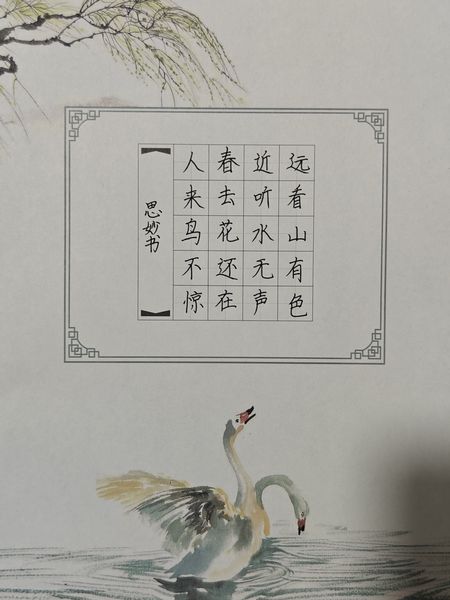 远看山有色
近听水无声
春去花还在
人来鸟不惊
思妙书